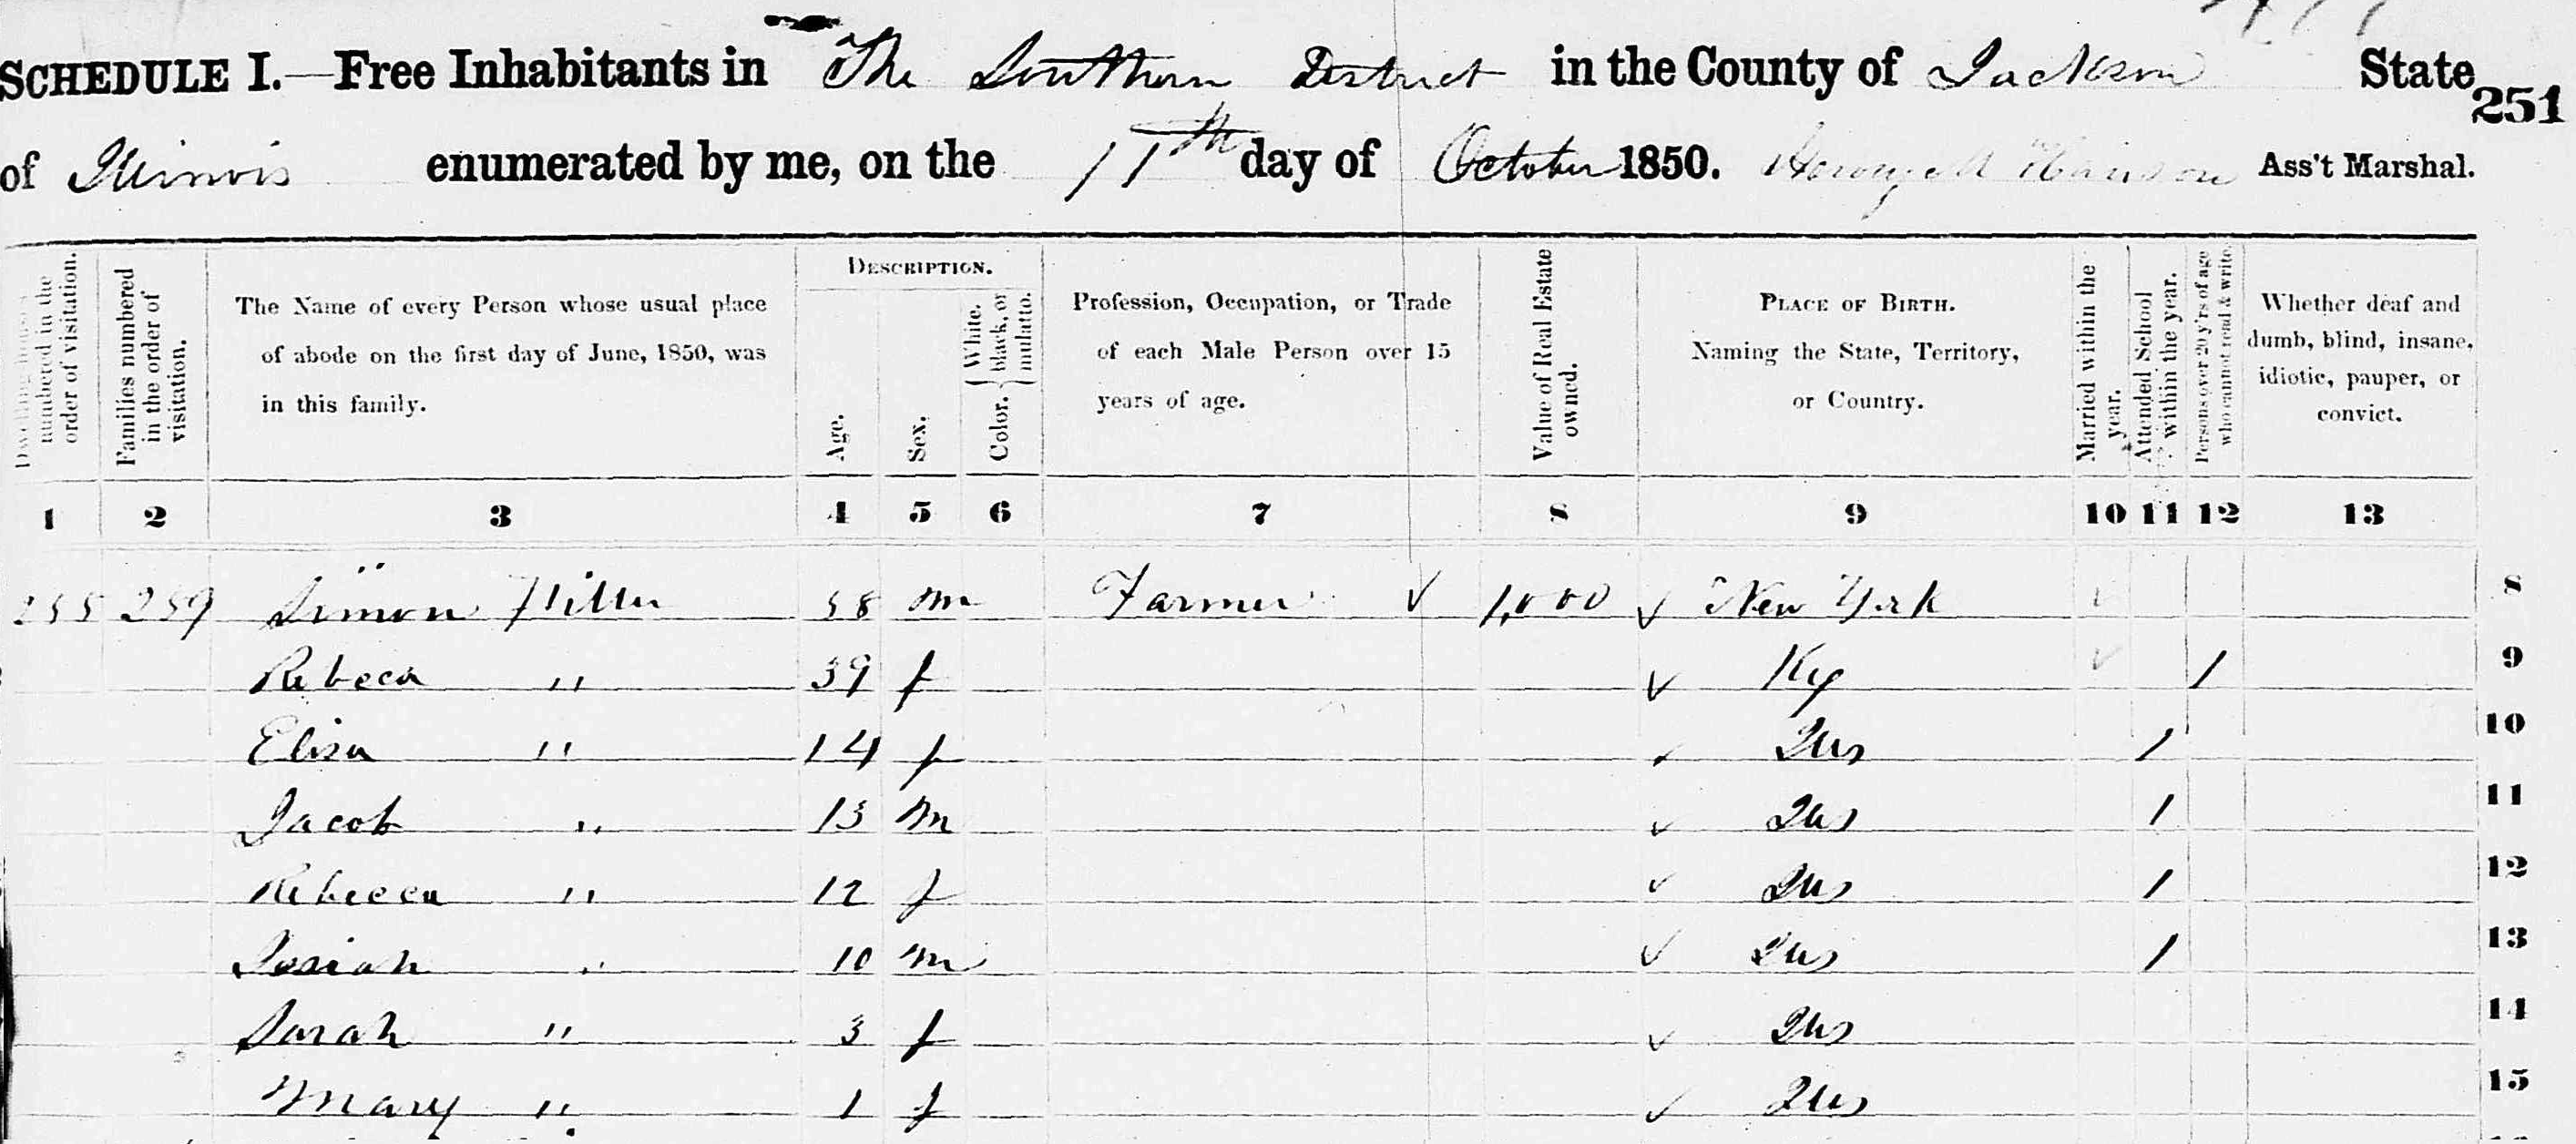 SCHEDULE I.—Free Inhabitants in The Southern District in the County of Jackson State
251
of Illinois enumerated by me, on the 11th day of October 1850. Ass't Marshal.
Dwelling-houses numbered in the order of visitation.
Families numbered in the order of visitation.
The Name of every Person whose usual place
of abode on the first day of June, 1850, was
in this family.
DESCRIPTION.
Age.
Sex.
Color. { White, black, or mulatto.
Profession, Occupation, or Trade
of each Male Person over 15
years of age.
Value of Real Estate owned.
PLACE OF BIRTH.
Naming the State, Territory,
or Country.
Married within the year.
Attended School within the year.
Persons over 20 y'rs of age who cannot read & write.
Whether deaf and
dumb, blind, insane,
idiotic, pauper, or
convict.
1 2 3 4 5 6 7 8 9 10 11 12 13
255 259 Simon 58 m Farmer ✓ 1,000 ✓ New York ✓ 8
Rebeca " 39 f ✓ Ky ✓ 1 9
Elisa " 14 f ✓ Ills 1 10
Jacob " 13 m ✓ Ills 1 11
Rebecca " 12 f ✓ Ills 1 12
Josiah " 10 m ✓ Ills 1 13
Sarah " 3 f ✓ Ills 14
Mary " 1 f ✓ Ills 15